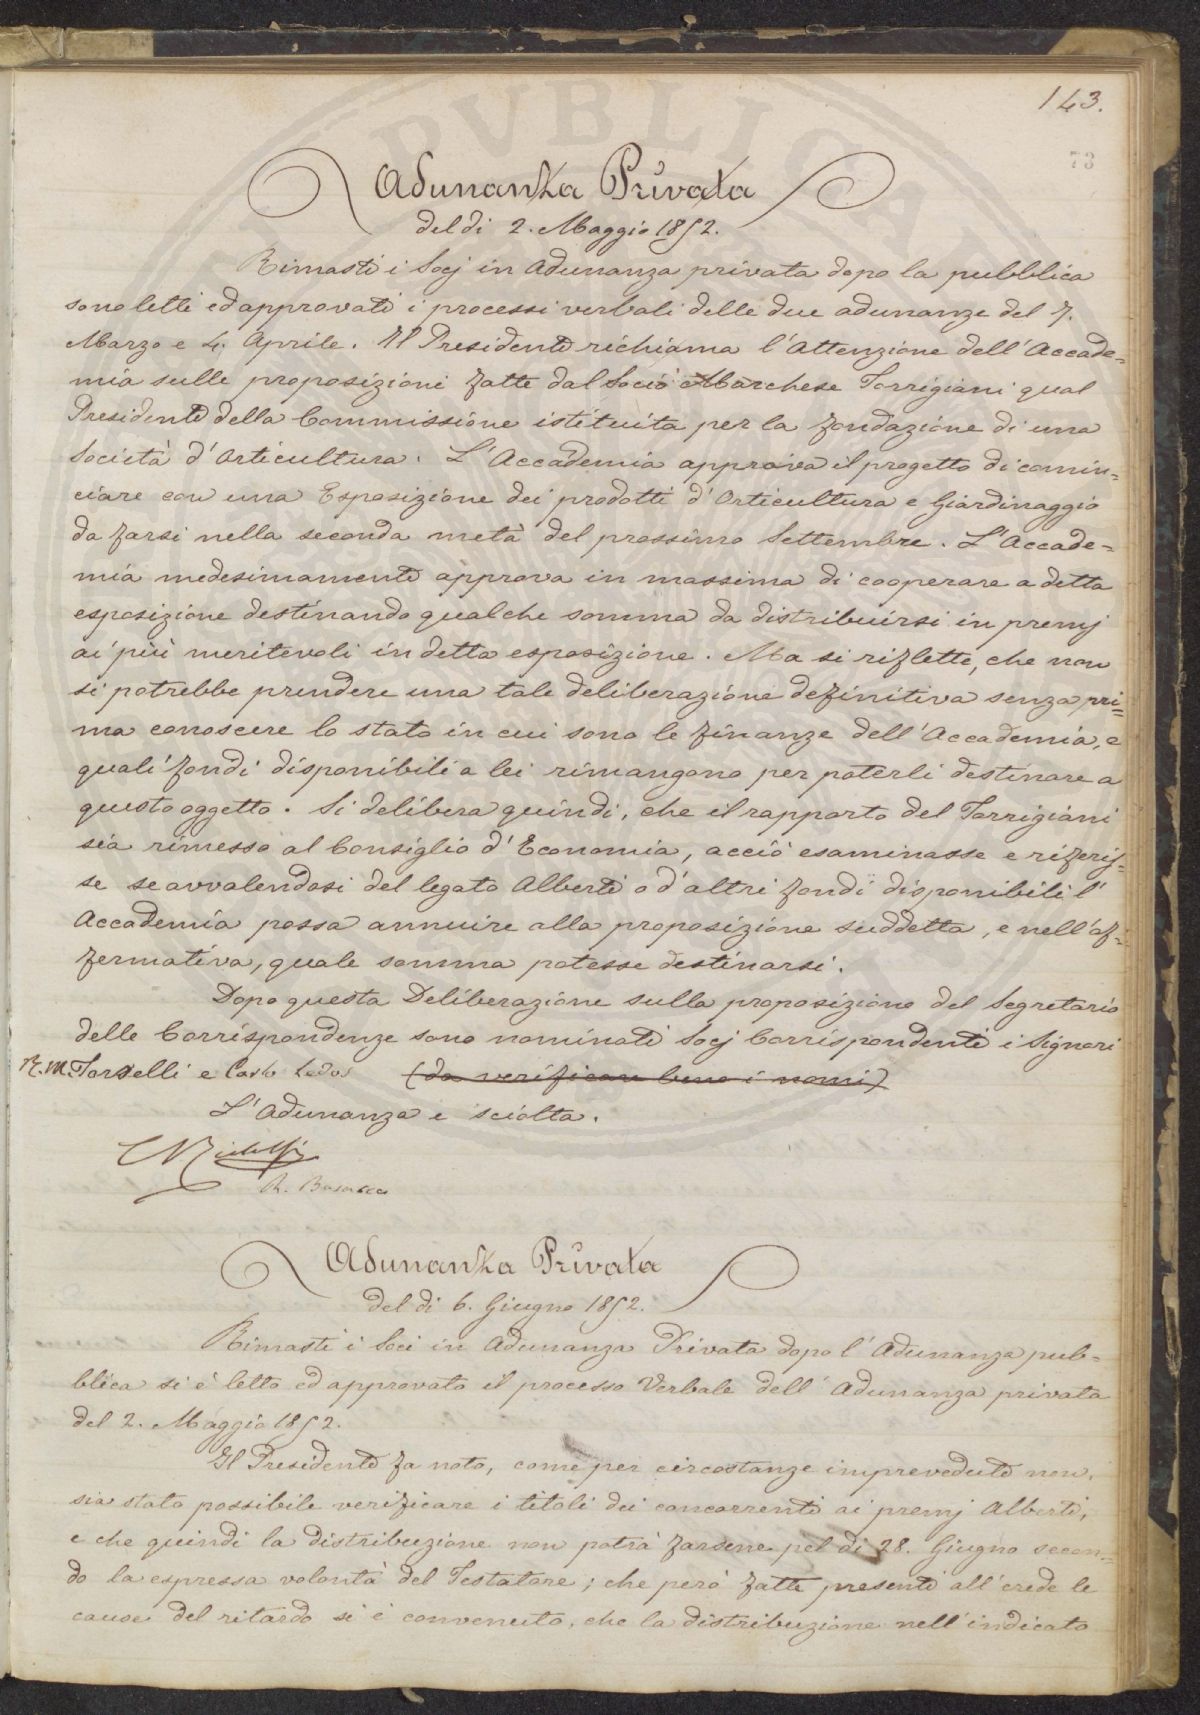 143.
73
Adunanza Privata
del di 2. Maggio 1852.
Rimasti i Socj in Adunanza privata dopo la pubblica
sono letti ed approvati i processi verbali delle due adunanze del 7.
Marzo e 4. Aprile. Il Presidente richiama l'Attenzione dell'Accade=
mia sulle proposizioni fatte dal Socio Marchese Torrigiani qual
Presidente della Commissione istituita per la fondazione di una
Società d'Orticultura. L'Accademia approva il progetto di comin=
ciare con una Esposizione dei prodotti d'Orticultura e Giardinaggio
da farsi nella seconda metà del prossimo Settembre. L'Accade=
mia medesimamente approva in massima di cooperare a detta
esposizione destinando qualche somma da distribuirsi in premj
ai più meritevoli in detta esposizione. Ma si riflette, che non
si potrebbe prendere una tale deliberazione definitiva senza pri=
ma conoscere lo stato in cui sono le finanze dell'Accademia, e
quali fondi disponibili a lei rimangono per poterli destinare a
questo oggetto. Si delibera quindi, che il rapporto del Torrigiani
sia rimesso al Consiglio d'Economia, acciò esaminasse e riferis=
se se avvalendosi del legato Alberti o d'altri fondi disponibili l'
Accademia possa annuire alla proposizione suddetta, e nell'af=
fermativa, quale somma potesse destinarsi.
Dopo questa Deliberazione sulla proposizione del Segretario
delle Corrispondenze sono nominati Socj Corrispondenti i Signori
Torselli e Carlo (da verificare bene i nomi)
L'Adunanza e sciolta.
Ridolfi
Adunanza Privata
del di 6. Giugno 1852.
Rimasti i Soci in Adunanza Privata dopo l'Adunanza pub=
blica si è letto ed approvato il processo Verbale dell'Adunanza privata
del 2. Maggio 1852.
Il Presidente fa noto, come per circostanze imprevedute non
sia stato possibile verificare i titoli dei concorrenti ai premj Alberti,
e che quindi la distribuzione non potrà farsene pel di 28. Giugno secon=
do la espressa volontà del Testatore; che però fatte presenti all'erede le
cause del ritardo si è convenuto, che la distribuzione nell'indicato